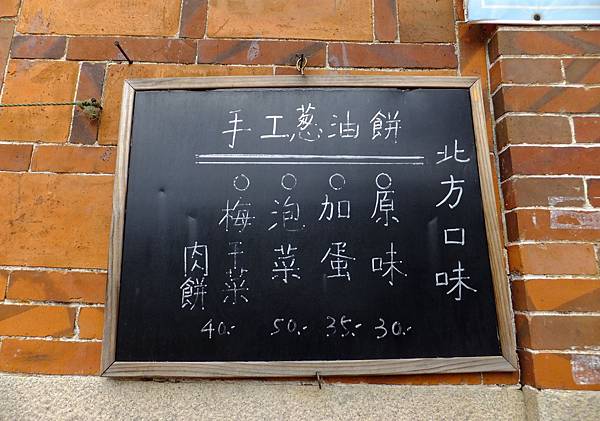 手工蔥油餅
北方口味
○原味 30.-
○加蛋 35.-
○泡菜 50.-
○梅干菜肉餅 40.-